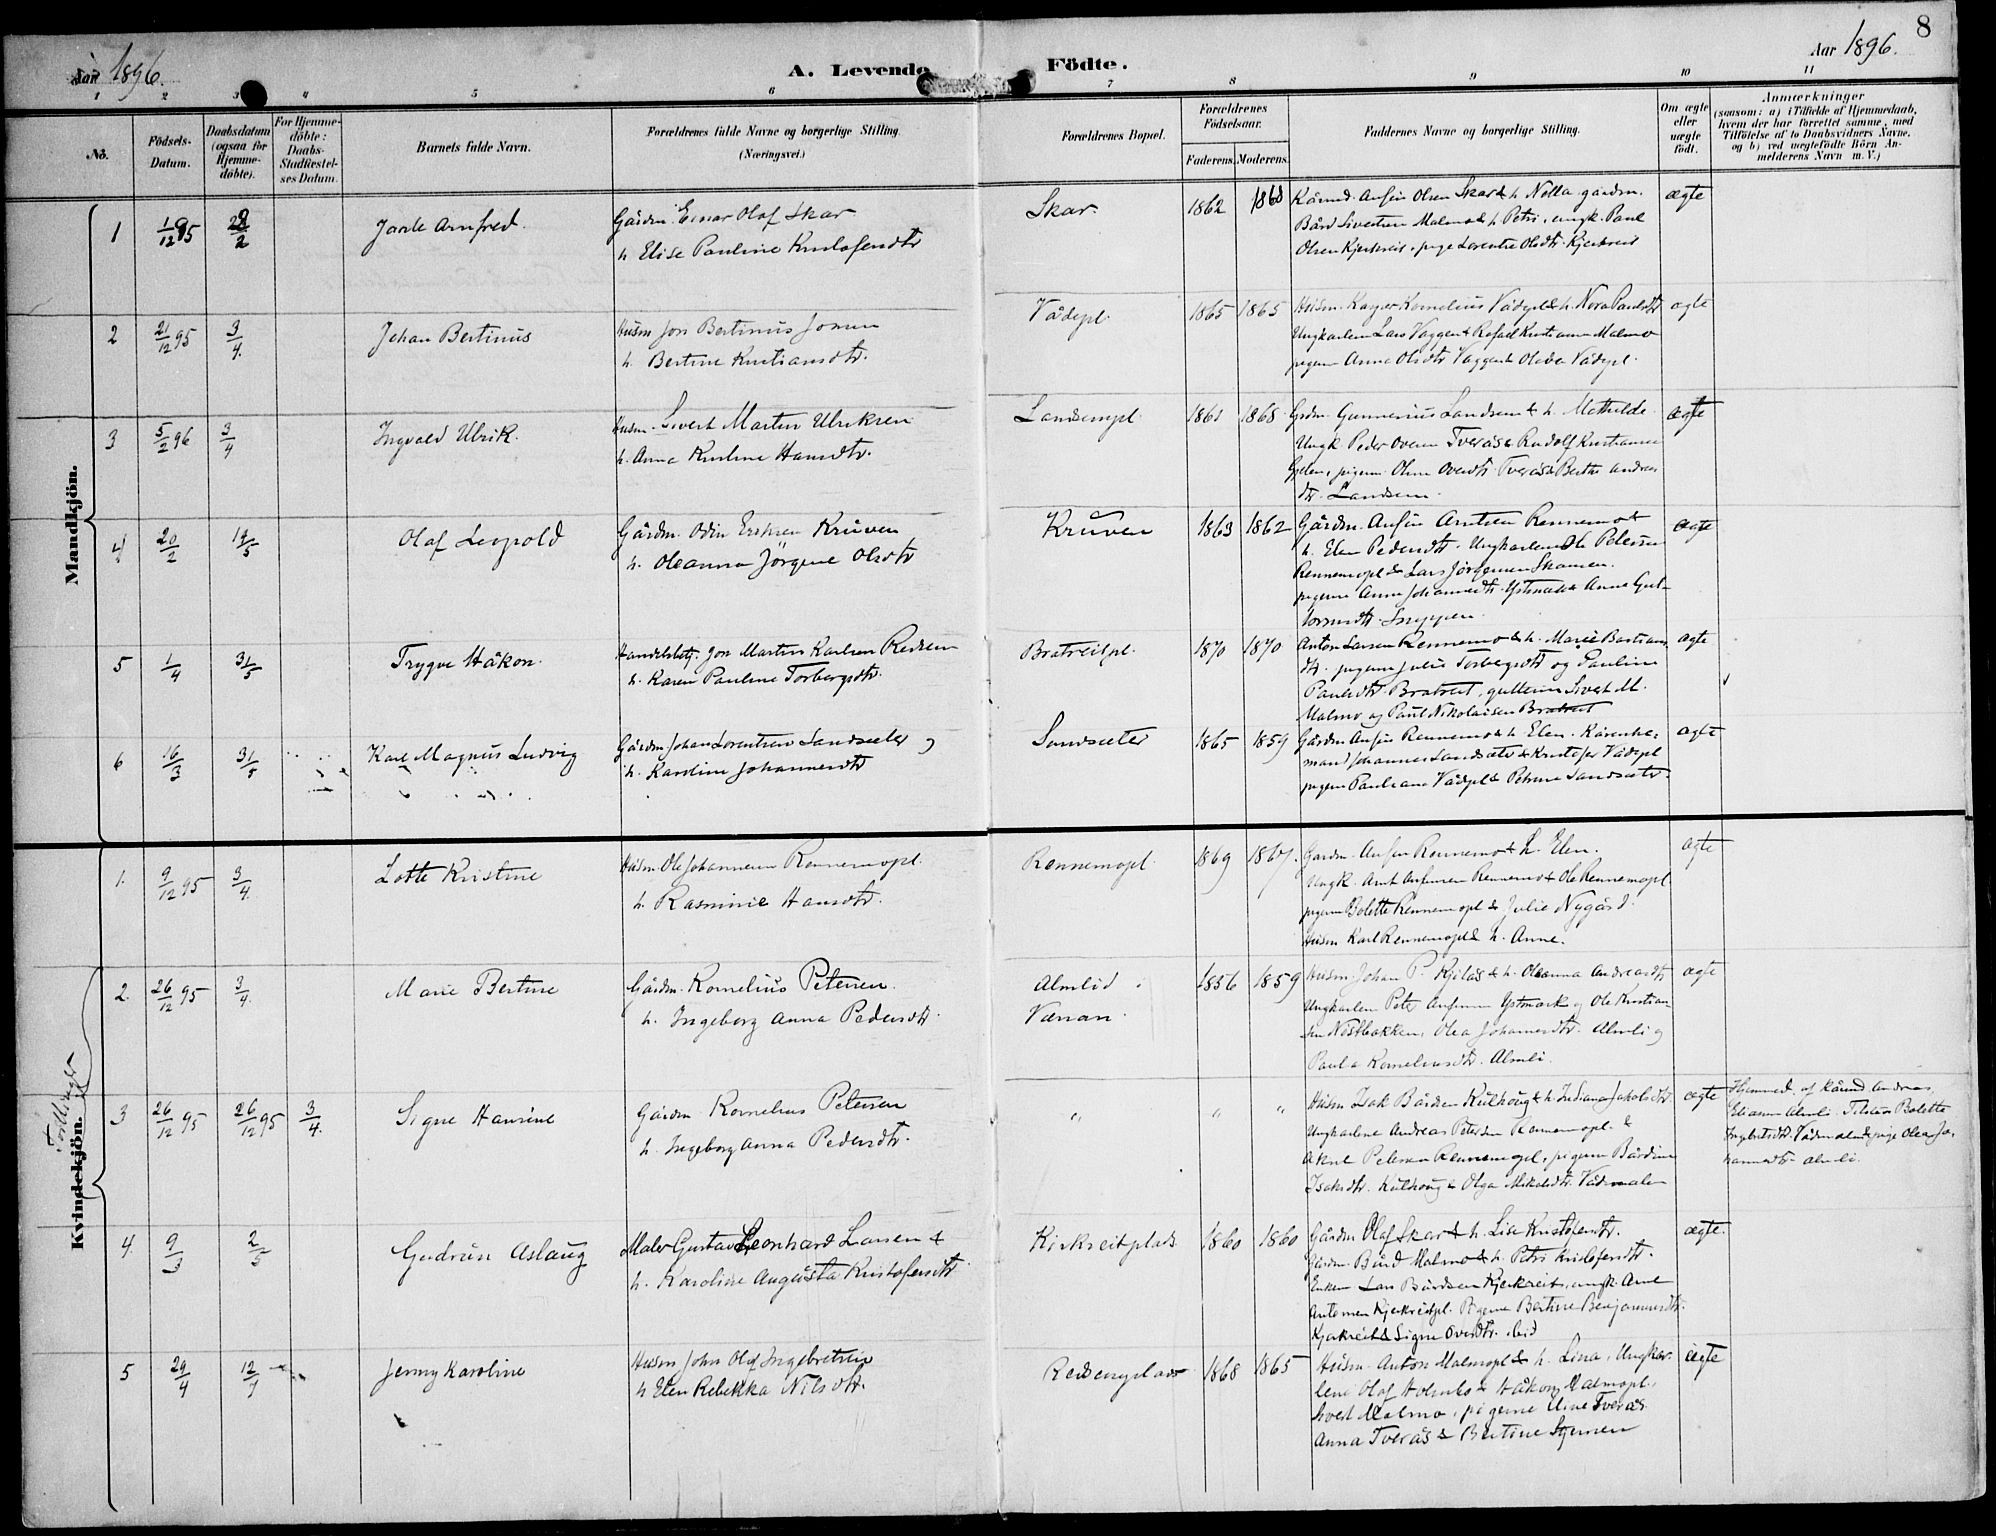 Aar 1896.
A. Levende Födte.
Aar 1896.
8
1 2 3 4 5 6 7 8 9 10 11
No.
Födsels-
Datum.
Daabsdatum
(ogsaa for
Hjemme-
döbte).
For Hjemme-
döbte:
Daabs-
Stadfæstel-
ses Datum.
Barnets fulde Navn.
Forældrenes fulde Navne og borgerlige Stilling.
(Næringsvei.)
Forældrenes Bopæl.
Forældrenes
Födselsaar.
Faderens. Moderens.
Faddernes Navne og borgerlige Stilling.
Om ægte
eller
uægte
födt.
Anmærkninger
(saasom: a) i Tilfælde af Hjemmedaab,
hvem der har forrettet samme, med
Tilföielse af to Daabsvidners Navne,
og b) ved uægtefödte Börn An-
melderens Navn m. V.)
Mandkjön.
1 1/12 95 2/2 Jarle Arnfred. Gårdm Einar Olaf Skar
h. Elise Pauline Kristofersdtr
Skar. 1862 1868
Bård Sivertsen Malmo & h. Petri, ungk. Paul
Olsen Kjerkreit, pige Lorentse Olsdtr Kjerkreit
ægte
2 21/12 95 3/4. Johan Bertinus Husm Jon Bertinus Jonsen
h. Bertine Kristiansdtr.
Vådepl. 1865 1865
pigerne Anna Olsdtr Vaggen & Oleva Vådepl.
ægte
3 5/2 96 3/4 Ingvald Ulrik. Husm. Sivert Martin Ulriksen
h. Anna Kristine Hansdtr.
Landsempl. 1868 Grdm. Gunnerius Landsem & h. Mathilde.
Ungk Peder Ovesen Tverås & Rudolf Kristiansen
dtr. Landsem.
ægte
4 20/2 14/5 Olaf Leopold Gårdm. Odin Eriksen Kruven
h. Oleanna Jörgine Olsdtr
Kruven 1863 1862 Gårdm. Ansin Arntsen Rennemo &
h. Elen Pedersdtr. Ungkarlene Ole Petersen
Rennemopl & Lars Jörgensen Skansen.
pigerne Anna Johannesdtr. Ystmark & Anna Gut-
tormsdtr. Snippen.
ægte
5 1/4 31/5 Trygve Håkon. Handelsbetj. Jon Martin Karlsen Redsem
h. Karen Pauline Torbergsdtr.
Bratreitpl. 1870 1870 Anton Larsen Rennemo & h. Marie Bastians
dtr. pigerne Julie Torbergsdtr og Pauline
Paulsdtr. Bratreit, gutterne Sivert M.
Malmo og Paul Nikolaisen Bratreit
ægte
6 16/3 31/5 Karl Magnus Ludvig Gårdm Johan Lorentsen Landsæter
h. Karoline Johannesdtr
Landsæter 1865 1859 Gårdm Ansin Rennemo & h. Elen. Kårenke-
mand Johannes Landsæter & Kristofer Vådepl
pigerne Pauliane Vådepl & Petrine Landsæter.
ægte
Kvindekjön.
Tvillinger
1. 9/12 95 3/4. Lotte Kristine Husm. Ole Johannesen Rennemopl.
h. Rasmine Hansdtr.
Rennemopl. 1869 1867. Gårdm. Ansin Rennemo & h. Elen.
Ungk. Arnt Ansinsen Rennemo & Ole Rennemopl.
pigerne Bolette Rennemopl & Julie Nygård.
Husm Karl Rennemopl & h. Anne.
ægte
2. 26/12 95 3/4. Marie Bertine Gårdm. Kornelius Petersen.
h. Ingeborg Anna Pedersdtr.
Almlid
Væran.
1856 1859 Husm. Johan P. Kjilås & h. Oleanna Andreasdtr
Ungkarlene Peter Ansinsen Ystmark og Ole Kristian
sen Nöstbakken, Olea Johannesdtr. Almli og
Paula Korneliusdtr. Almli.
ægte
3 26/12 95 26/12 95 3/4. Signe Hansine Gårdm Kornelius Petersen
h. Ingeborg Anna Pedersdtr.
" " " Husm Isak Bårdsen Kulhoug & h. Indiana Jakobsdtr.
Ungkarlene Andreas Petersen Rennemopl. &
Aksel Petersen Rennemopl, pigerne Bårdine
Isaksdtr. Kulhoug & Olga Mikalsdtr. Vådmalen
ægte
Hjemmed. af kårmd Andreas
Eliasen Almli. Tilstede Bolette
Ingebrigtsdtr. Vådmalen & pige Olea Jo-
hannesdtr Almli.
4. 9/3 2/5 Gudrun Aslaug Maler Gustav Leonhard Larsen &
h. Karoline Augusta Kristofersdtr.
Kirkreitplads 1860 1860 Gårdm Olaf Skar & h. Lise Kristofersdtr.
Gårdm. Bård Malmo & h. Petri Kristofersdtr.
Enkem Lars Bårdsen Kjerkreit, ungk. Arne
Antonsen Kjerkreitpl. Pigerne Bertine Benjaminsdtr.
Kjerkreit & Signe Ovesdtr. ibid
ægte.
5 29/4 Jenny Karoline Husm John Olaf Ingebretsen
h Elen Rebekka Nilsdtr.
Redsemplads 1868 1865 Husm. Anton Malmopl & h. Lina, Ungkar-
lene Olaf Holmbo & Håkon Malmopl.
Sivert Malmo, pigerne Line Tverås
Anna Tverås & Bertine Stjernen
ægte